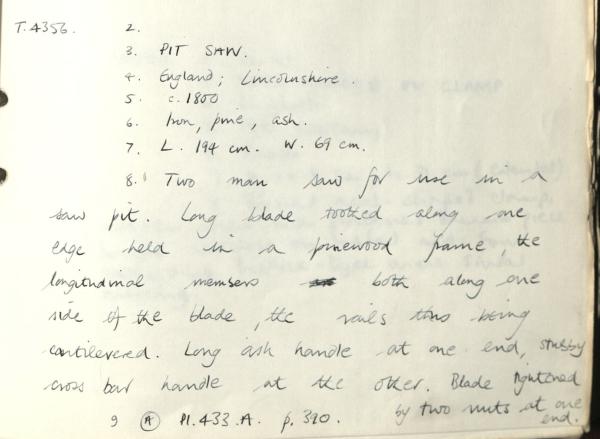 T.4356. 2.
3. PIT SAW.
4. England; Lincolnshire.
5. c. 1800
6. Iron, pine, ash.
7. L. 194 cm. W. 69 cm.
8. Two man saw for use in a
saw pit. Long blade toothed along one
edge held in a pinewood frame, the
longitudinal members both along one
side of the blade, the rails thus being
cantilevered. Long ash handle at one end, stubby
cross bar handle at the other. Blade tightened
by two nuts at one
end.
9 (A) Pl. 433. A. p. 390.